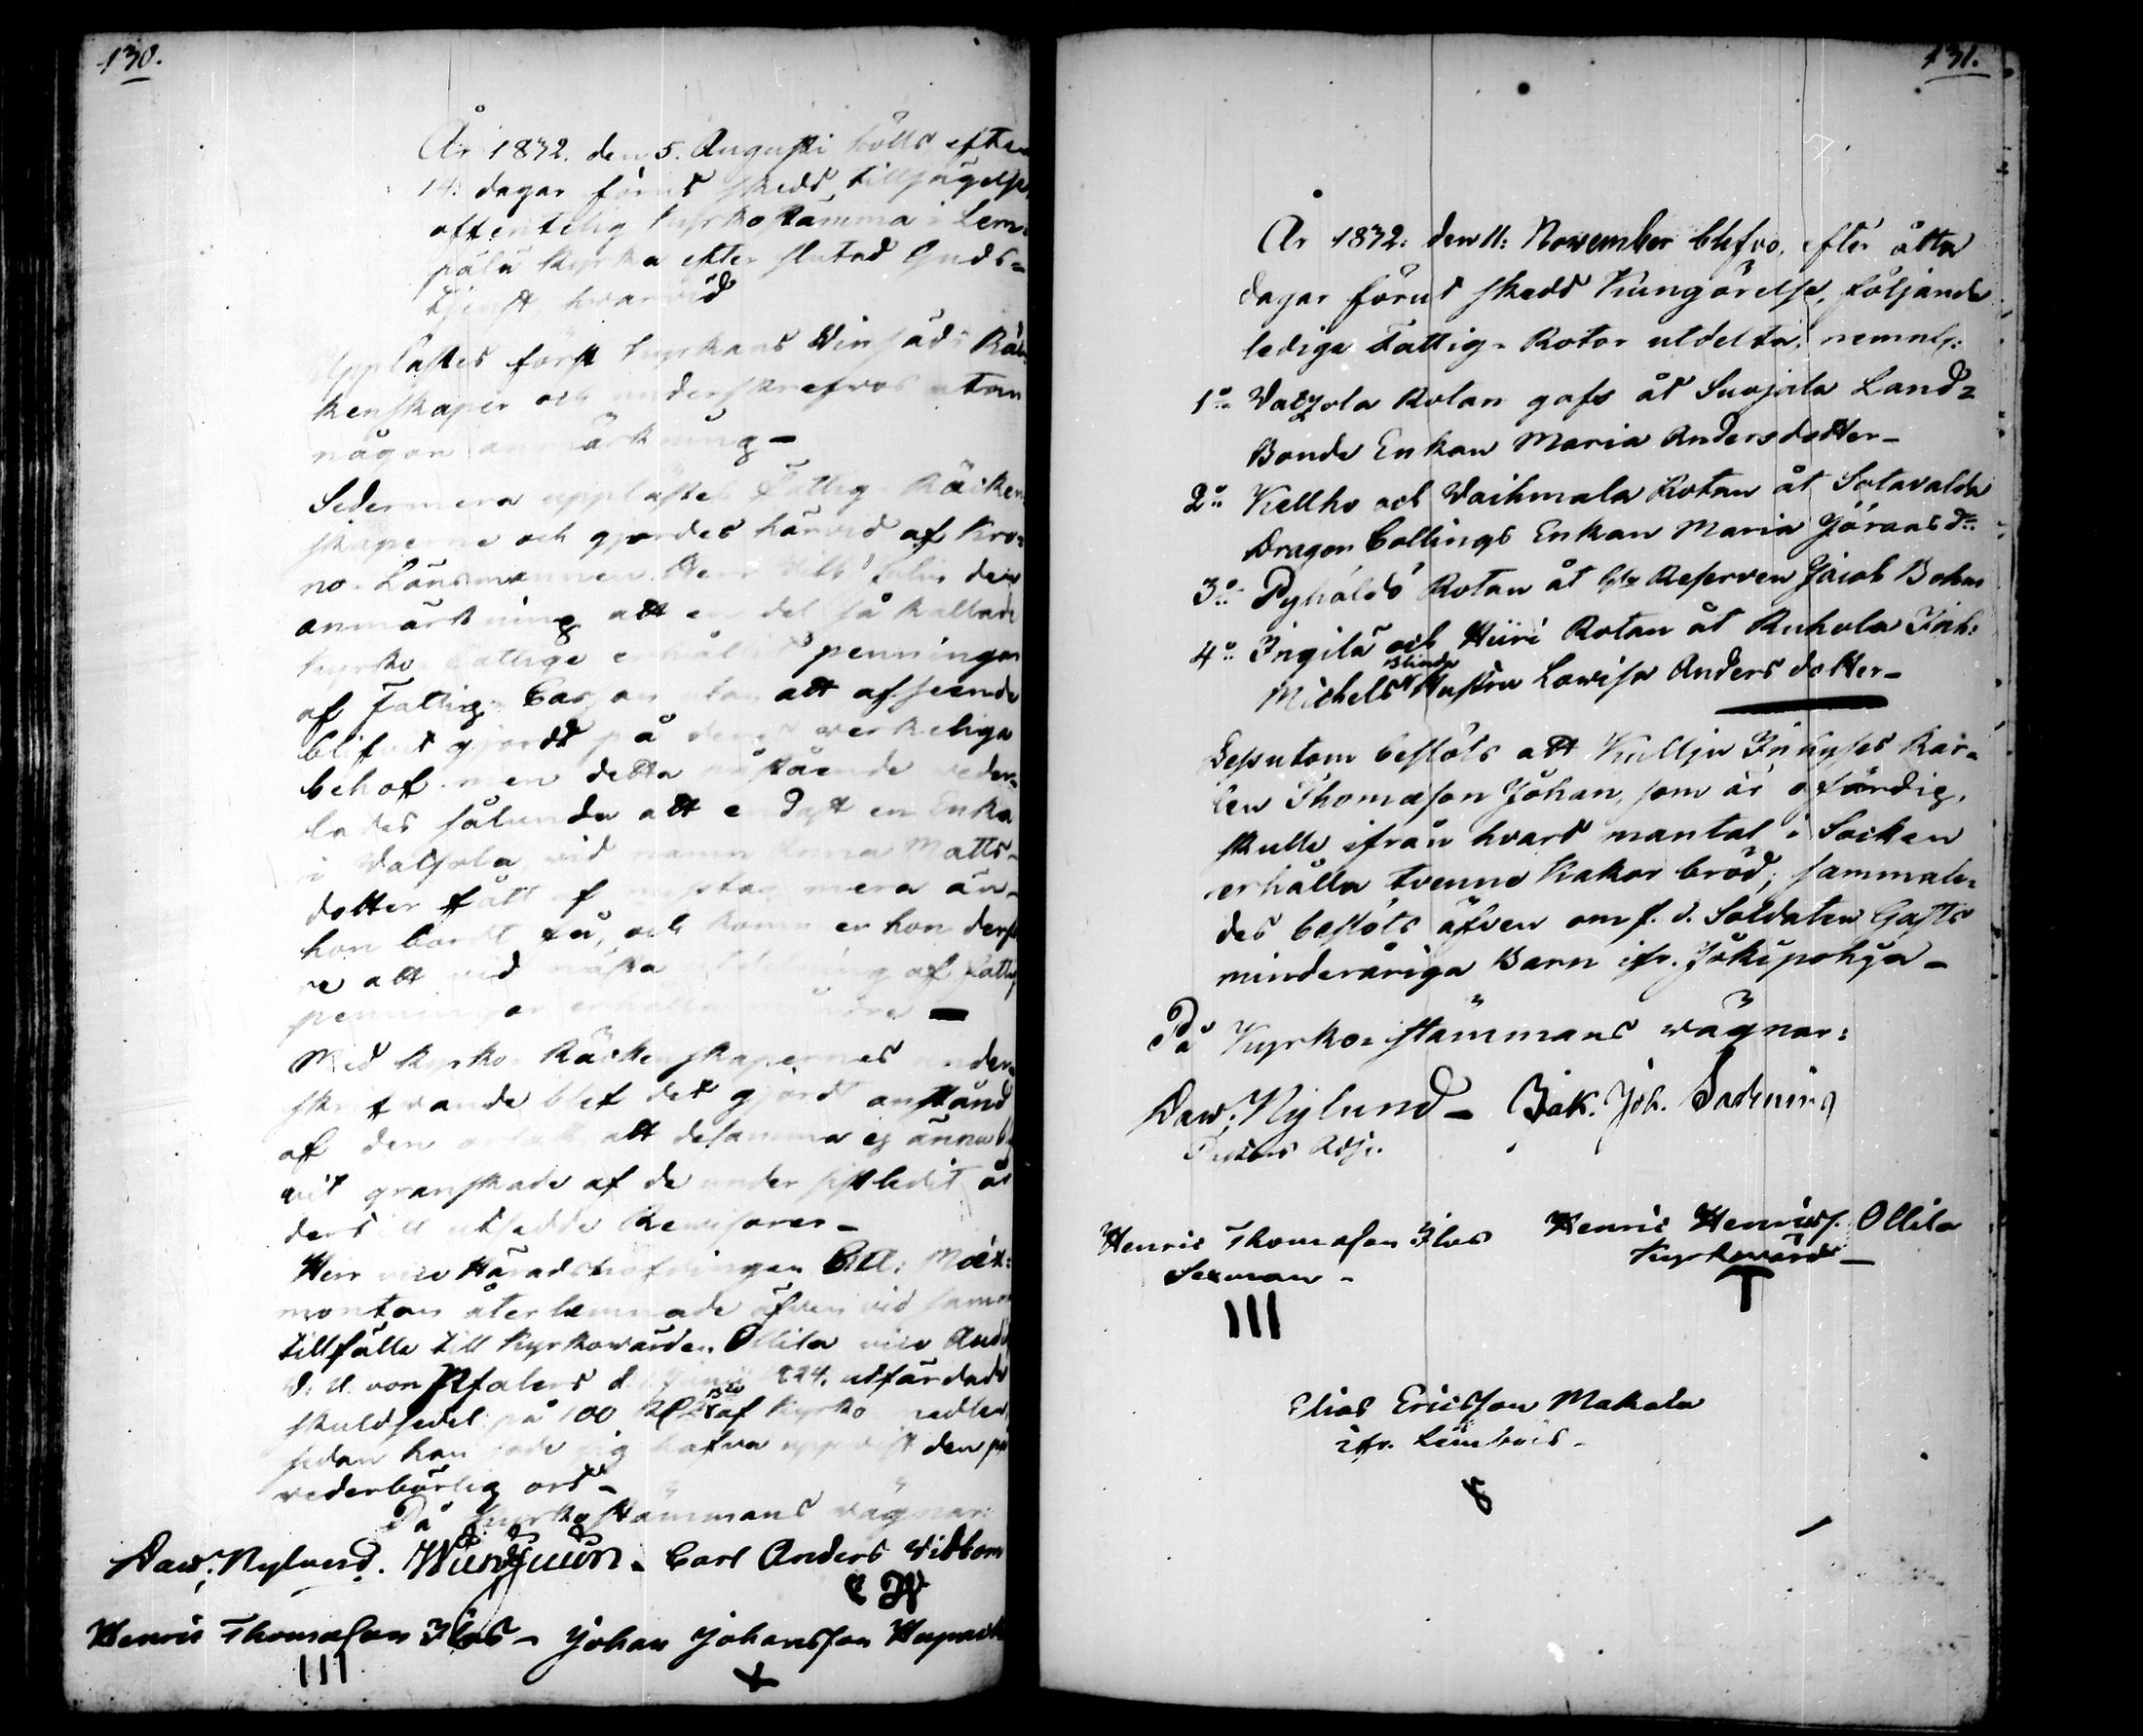 130.
År 1832. den 5. Augusti hölls efter
14. dagar förut skedd tillsägelse
offentelig Kyrkostämma i Lem-
pälä Kyrka efter slutad Guds-
tjenst, hvarvid
Upplästes först Kyrkans Vinsäds Räk-
kenskaper och underskrefvos utan
någon anmärkning –
Sedermera upplästes Fattig-Räcken-
skaperne och gjordes härvid af Kro-
no-Länsmannen Herr den
anmärkning att en del så kallade
Kyrko fattige erhållit penningar
af Fattig-Cassan utan att afseende
blifvit gjordt på deras verkeliga
behof. men detta påstående veder-
lades sålunda att endast en Enka
i Vatsola vid namn Anna Matts-
dotter fått af mera än
hon bordt få, och kommer hon derfö-
re att vid nästa utdelning af fattig
penningar erhålla mindre –
Med Kyrko-Räckenskapernes under-
skrifvande blef det gjordt anstånd
af den orsak att desamma ej ännu bli-
vit granskade af de under sistledit år
dertill utsedde Revisorer –
Herr vice Häradshöfdingen
montan återlemnade äfven vid samma
tillfälle till Kyrkovärden Ollila
von Pfalers d. 824. utfärdade
skuldsedel på 100 af Kyrko medlen,
sedan han sade sig hafva uppvist den på
vederbörlig ort –
På Kyrkostämmans vägnar:
Daw: Nylund. Carl Anders Vidbom
Henric Thomasson Ilos – Johan Johansson
III
131.
År 1832: den 11: November blefvo, efter åtta
dagar förut skedd Kungörelse, följande
lediga Fattig-Rotor utdelta, nemnl:
1o Vatzola Rotan gafs åt Suojala Land-
Bonde Enkan Maria Andersdotter –
2o Kellho och Vaihmala Rotan åt Sotavalda
Dragon Collings Enkan Maria Göransdr.
3o Pyhäldö Rotan åt Reserven Jacob Bohm
4o Ingilä och Hiiri Rotan åt Ruhola Inh:
Michels Blinda Hustru Lovisa Anders dotter –
Dessutom beslöts att Kulju Inhyses Kar-
len Thomasson Johan, som är ofärdig,
skulle ifrån hvart mantal i Socken
erhålla tvenne Kakor bröd; sammale-
des beslöts äfven om f. d. Soldaten Gasts
minderåriga Barn ifr. Jokipohja –
På Kyrko-stämmans vägnar:
Daw: Nylund – Isak. Joh.
Pastors Adj.
Henric Thomasson Ilos Henric Henricss. Ollila
Sexman – Kyrkovärd –
III T
Elias Ericsson Makala
ifr.